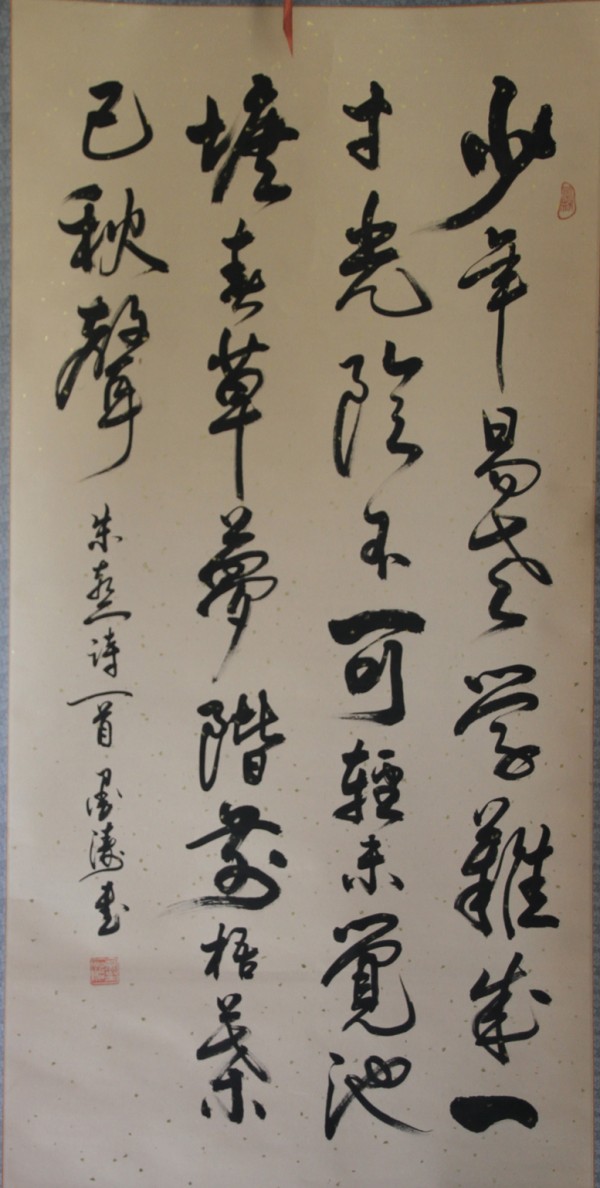 少年易老学難成一
寸光陰不可輕未覺池
塘春草夢階前梧葉
已秋聲
朱熹詩一首 書